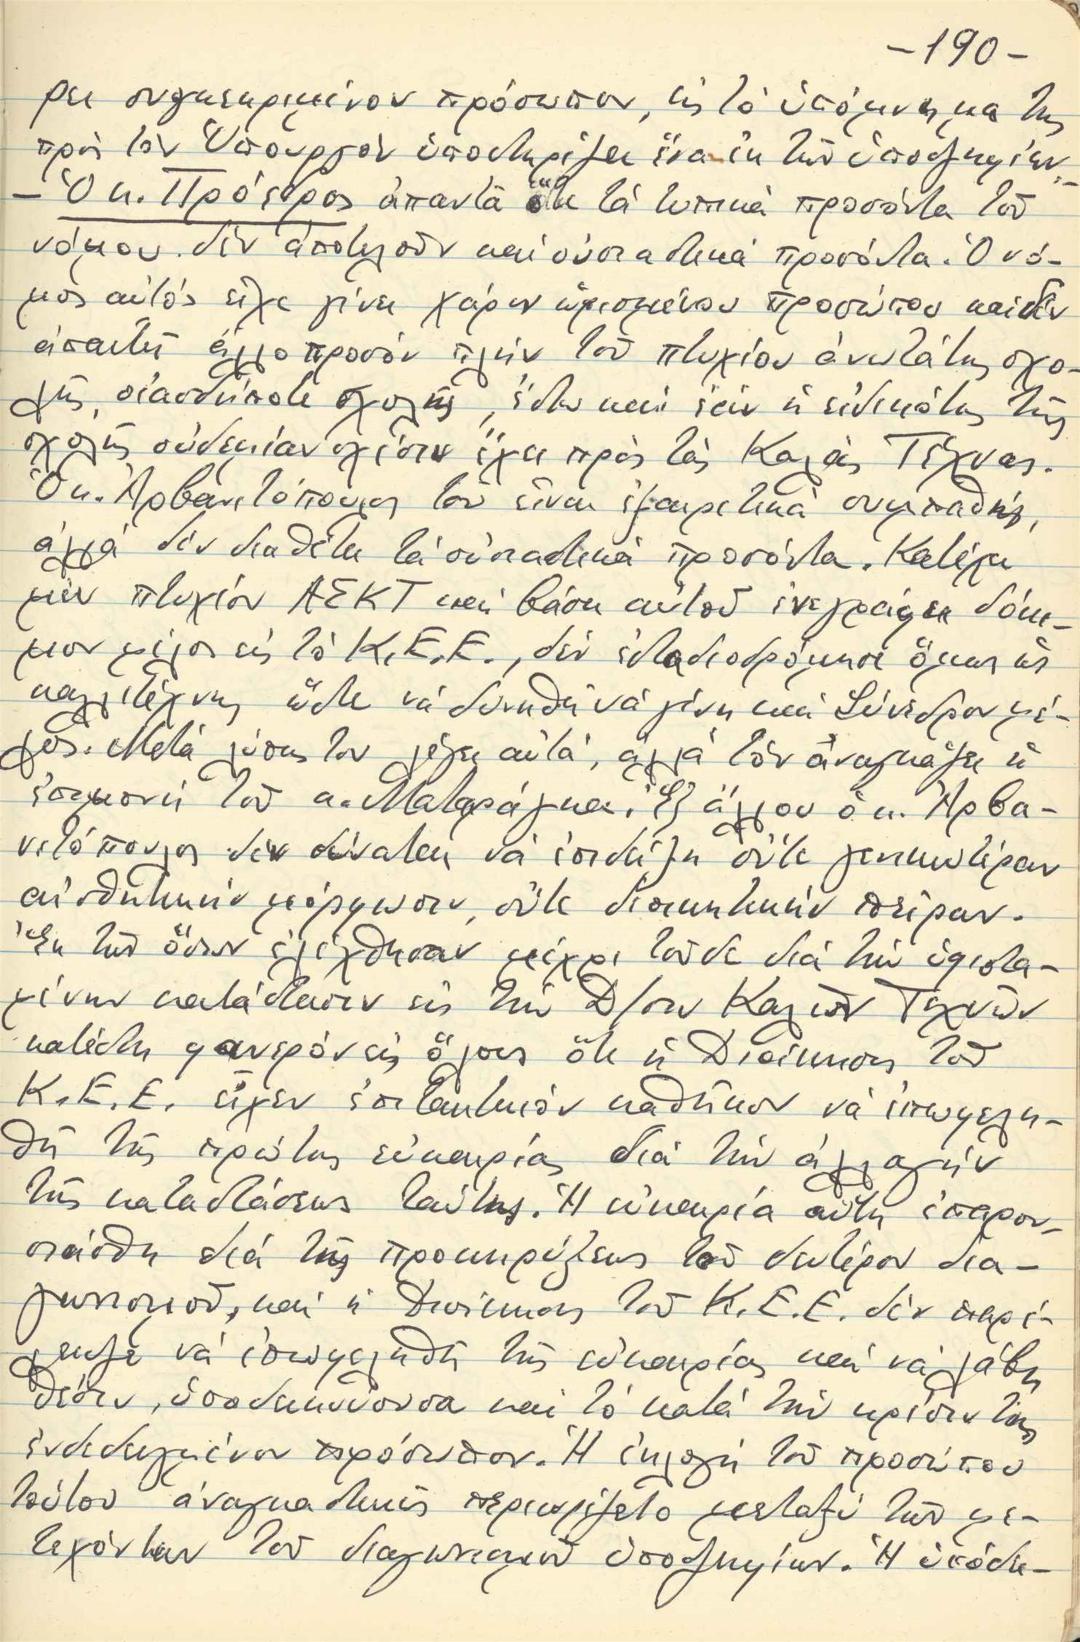 -190-
ρει συγκεκριμένον πρόσωπον, εἰς τό ὑπόμνημα της
πρός τόν Ὑπουργόν ὑποστηρίζει ἕνα ἐκ τῶν ὑποψηφίων.-
- Ὁ κ. Πρόεδρος ἀπαντᾶ ὅτι τά τυπικά προσόντα τοῦ
νόμου δέν ἀποτελοῦν καί οὐσιαστικά προσόντα. Ὁ νό-
μος αὐτός εἶχε γίνει χάριν ὡρισμένου προσώπου καί δέν
ἀπαιτεῖ ἄλλο προσόν πλήν τοῦ πτυχίου ἀνωτάτης σχο-
λῆς, οἱασδήποτε σχολῆς, ἔστω καί ἐάν ἡ εἰδικότης τῆς
σχολῆς οὐδεμίαν σχέσιν ἔχει πρός τάς Καλάς Τέχνας.
Ὁ κ. Ἀρβανιτόπουλος τοῦ εἶναι ἐξαιρετικά συμπαθής,
ἀλλά δέν διαθέτει τά οὐσιαστικά προσόντα. Κατέχει
μέν πτυχίον ΑΣΚΤ καί βάσει αὐτοῦ ἐνεγράφει δόκι-
μον μέλος εἰς τό Κ.Ε.Ε., δέν ἐσταδιοδρόμησε ὅμως ὡς
καλλιτέχνης ὥστε νά δυνηθῆ νά γίνη καί Σύνεδρον μέ-
λος. Μετά λύπης του λέγει αὐτά, ἀλλά τόν ἀναγκάζει ἡ
ἐπιμονή τοῦ κ. Ματαράγκα. Ἐξ ἄλλου ὁ κ. Ἀρβα-
νιτόπουλος δέν δύναται νά ἐπιδείξη οὔτε γενικωτέραν
αἰσθητικήν μόρφωσιν, οὔτε διοικητικήν πεῖραν.
Ἐκ τῶν ὅσων ἐλέχθησαν μέχρι τοῦδε διά τήν ὑφιστα-
μένην κατάστασιν εἰς τήν Δ/σιν Καλῶν Τεχνῶν
κατέστη φανερόν εἰς ὅλους ὅτι ἡ Διοίκησις τοῦ
Κ.Ε.Ε. εἶχεν ἐπιτακτικόν καθῆκον νά ἐπωφελη-
θῆ τῆς πρώτης εὐκαιρίας διά τήν ἀλλαγήν
τῆς καταστάσεως ταύτης. Ἡ εὐκαιρία αὕτη ἐπαρου-
σιάσθη διά τῆς προκηρύξεως τοῦ δευτέρου δια-
γωνισμοῦ, καί ἡ Διοίκησις τοῦ Κ.Ε.Ε. δέν παρέ-
λειψε νά ἐπωφεληθῆ τῆς εὐκαιρίας καί νά λάβη
θέσιν, ὑποδεικνύουσα καί τό κατά τήν κρίσιν της
ἐνδεδειγμένον πρόσωπον. Ἡ ἐκλογή τοῦ προσώπου
τούτου ἀναγκαστικῶς περιωρίζετο μεταξύ τῶν με-
τεχόντων τοῦ διαγωνισμοῦ ὑποψηφίων. Ἡ ὑπόδε-